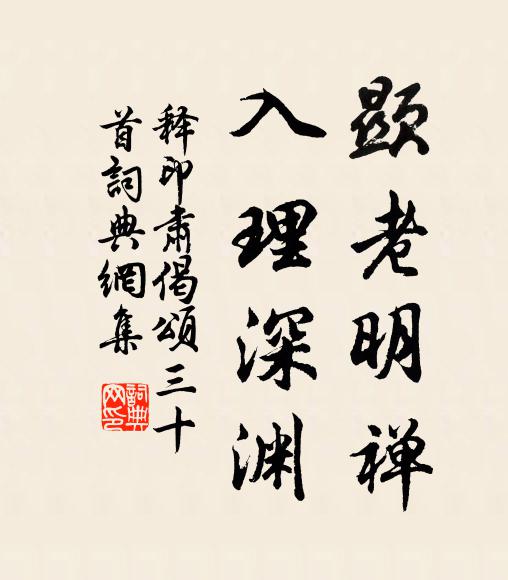 顯老明禅
入理深渊
释印肅偈頌三十
首詞典網集
詞典
网印